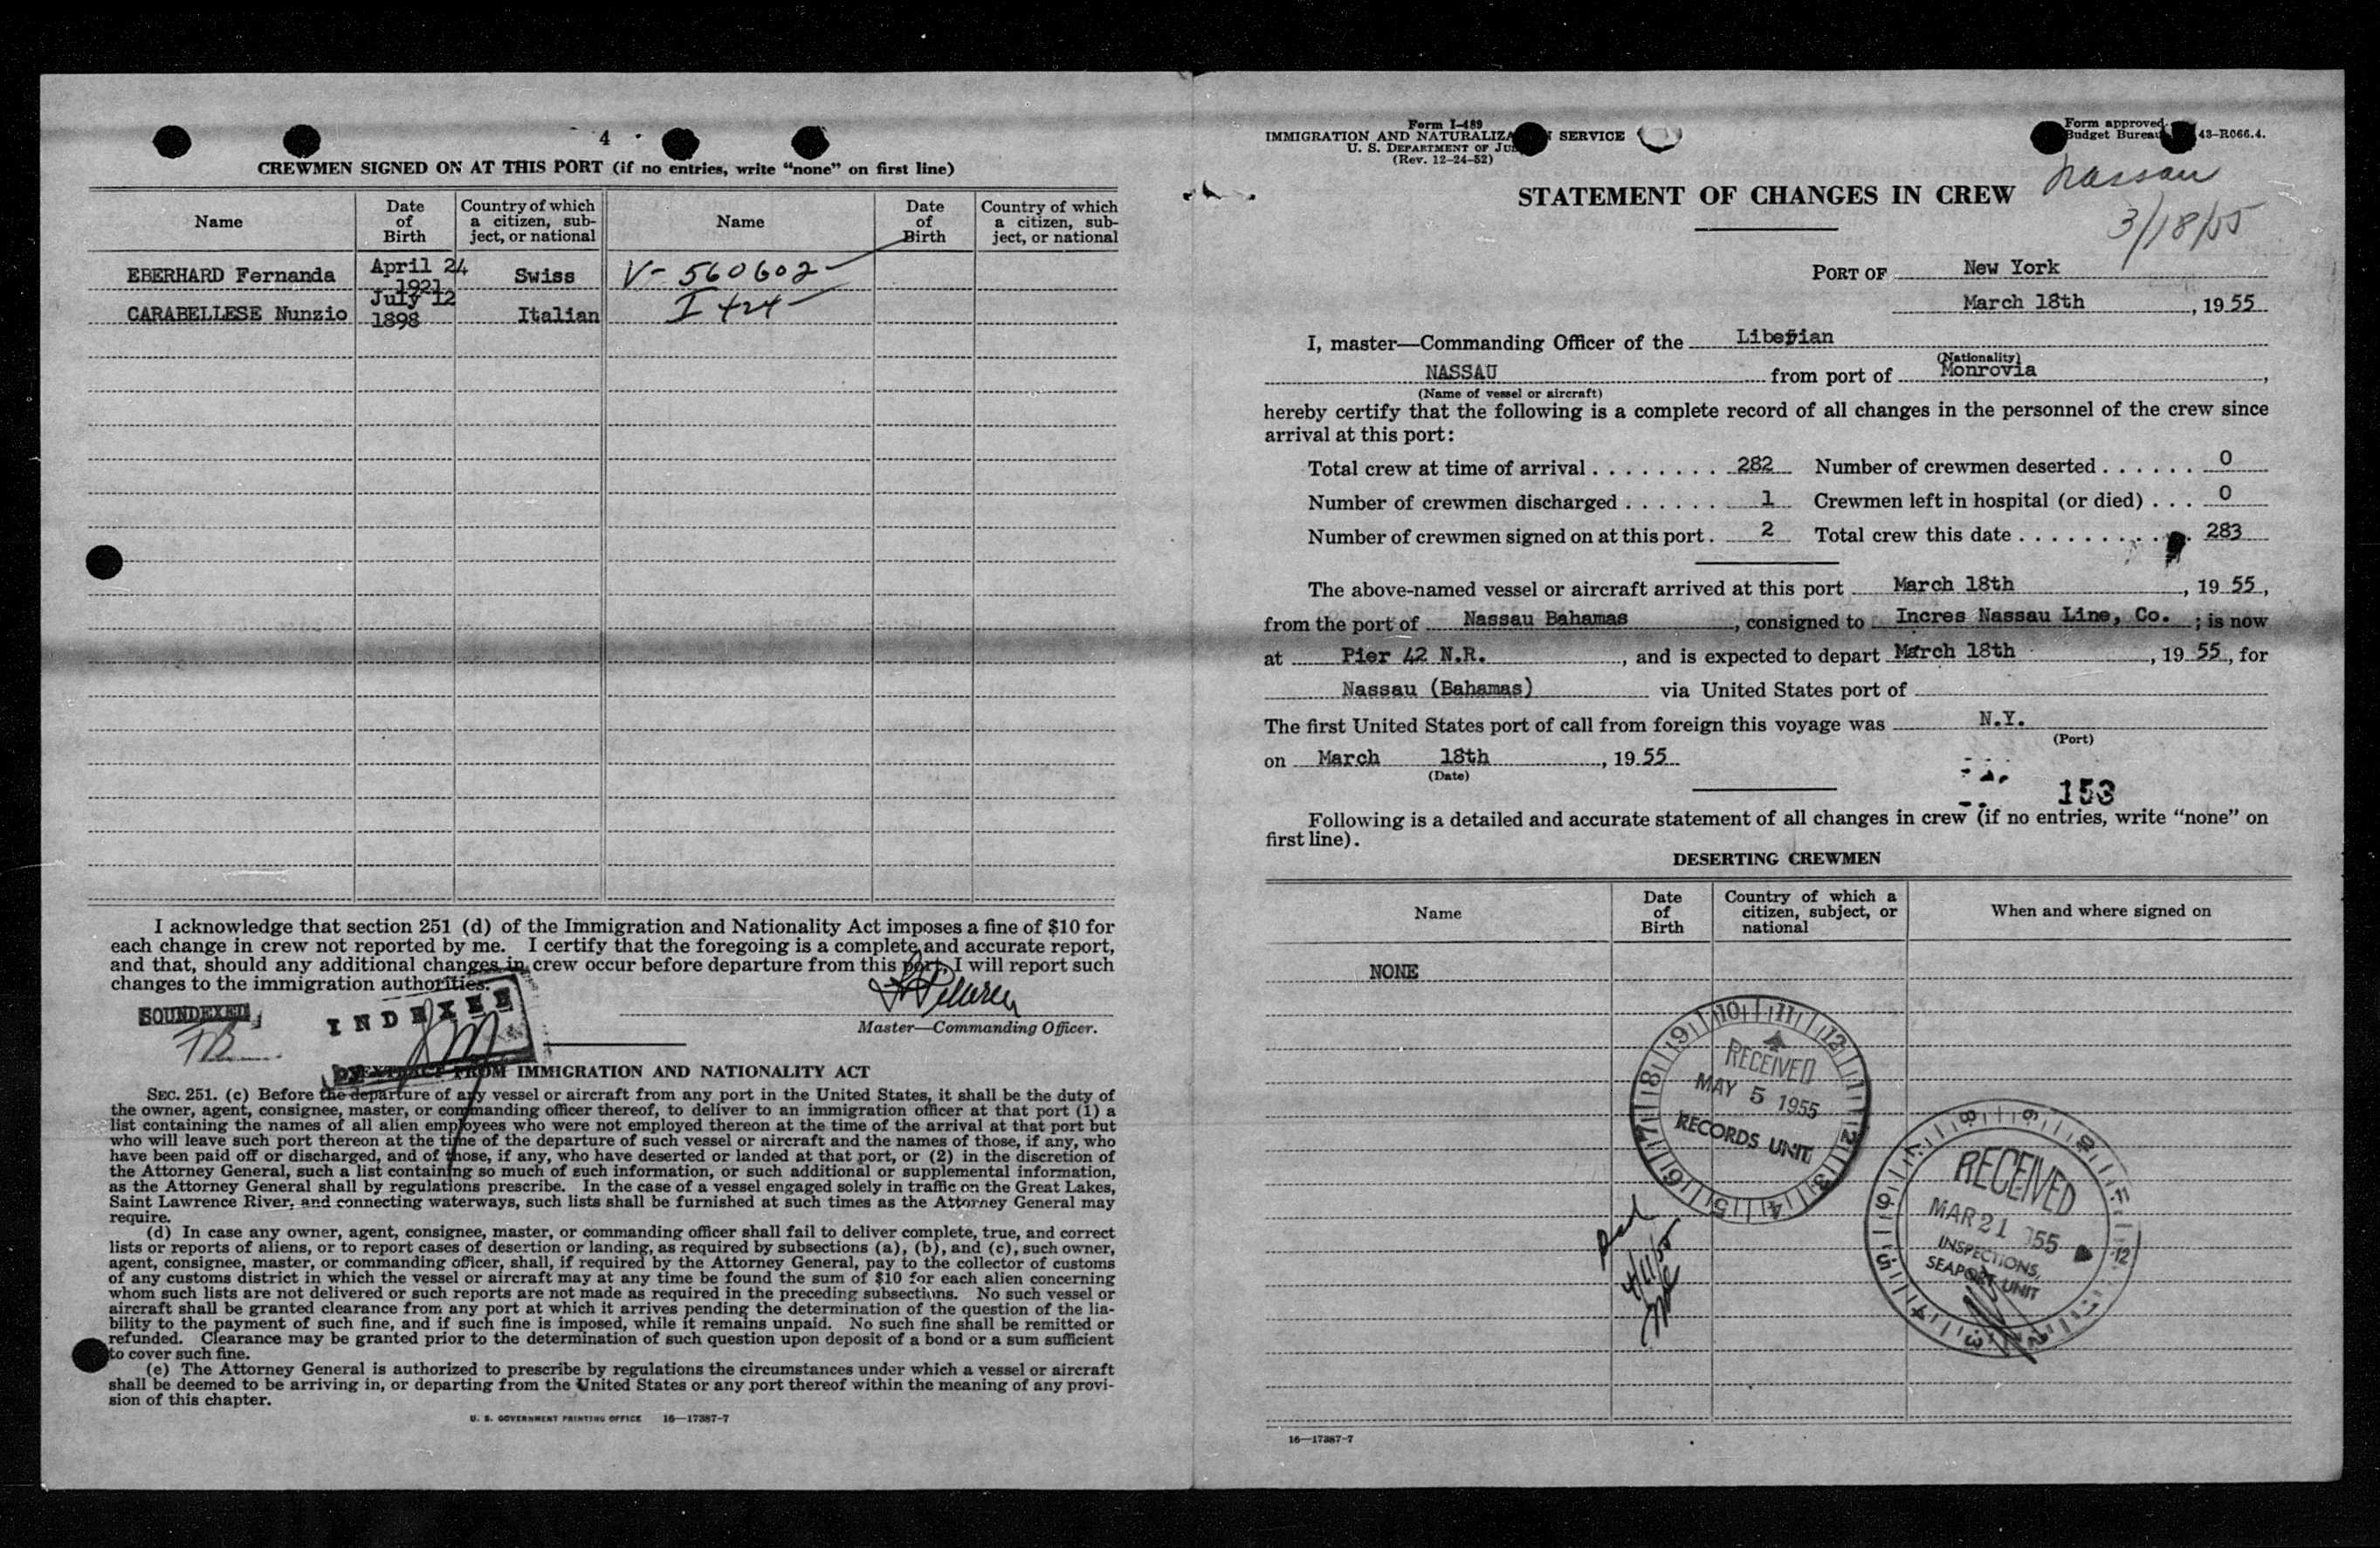 4
CREWMEN SIGNED ON AT THIS PORT (if no entries, write "none" on first line)
Name Date of Birth Country of which a citizen, subject, or national Name Date of Birth Country of which a citizen, subject, or national
EBERHARD Fernanda April 24 1921 Swiss V- 560602
CARABELLESE Nunzio July 12 1898 Italian I 424
I acknowledge that section 251 (d) of the Immigration and Nationality Act imposes a fine of $10 for
each change in crew not reported by me. I certify that the foregoing is a complete and accurate report,
and that, should any additional changes in crew occur before departure from this port, I will report such
changes to the immigration authorities.
SOUNDEXED
INDEXED
by
Master—Commanding Officer.
EXTRACT FROM IMMIGRATION AND NATIONALITY ACT
SEC. 251. (c) Before the departure of any vessel or aircraft from any port in the United States, it shall be the duty of
the owner, agent, consignee, master, or commanding officer thereof, to deliver to an immigration officer at that port (1) a
list containing the names of all alien employees who were not employed thereon at the time of the arrival at that port but
who will leave such port thereon at the time of the departure of such vessel or aircraft and the names of those, if any, who
have been paid off or discharged, and of those, if any, who have deserted or landed at that port, or (2) in the discretion of
the Attorney General, such a list containing so much of such information, or such additional or supplemental information,
as the Attorney General shall by regulations prescribe. In the case of a vessel engaged solely in traffic on the Great Lakes,
Saint Lawrence River, and connecting waterways, such lists shall be furnished at such times as the Attorney General may
require.
(d) In case any owner, agent, consignee, master, or commanding officer shall fail to deliver complete, true, and correct
lists or reports of aliens, or to report cases of desertion or landing, as required by subsections (a), (b), and (c), such owner,
agent, consignee, master, or commanding officer, shall, if required by the Attorney General, pay to the collector of customs
of any customs district in which the vessel or aircraft may at any time be found the sum of $10 for each alien concerning
whom such lists are not delivered or such reports are not made as required in the preceding subsections. No such vessel or
aircraft shall be granted clearance from any port at which it arrives pending the determination of the question of the lia-
bility to the payment of such fine, and if such fine is imposed, while it remains unpaid. No such fine shall be remitted or
refunded. Clearance may be granted prior to the determination of such question upon deposit of a bond or a sum sufficient
to cover such fine.
(e) The Attorney General is authorized to prescribe by regulations the circumstances under which a vessel or aircraft
shall be deemed to be arriving in, or departing from the United States or any port thereof within the meaning of any provi-
sion of this chapter.
U. S. GOVERNMENT PRINTING OFFICE 16—17387-7
Form I-489
IMMIGRATION AND SERVICE
U. S. DEPARTMENT OF
(Rev. 12-24-52)
Form approved.
Budget Bureau 43-R066.4.
Nassau
3/18/55
STATEMENT OF CHANGES IN CREW
PORT OF New York
March 18th, 1955
I, master—Commanding Officer of the Liberian
(Nationality)
NASSAU from port of Monrovia,
(Name of vessel or aircraft)
hereby certify that the following is a complete record of all changes in the personnel of the crew since
arrival at this port:
Total crew at time of arrival . . . . . . . . 282 Number of crewmen deserted . . . . . . 0
Number of crewmen discharged . . . . . . 1 Crewmen left in hospital (or died) . . . 0
Number of crewmen signed on at this port . 2 Total crew this date . . . . . . . . . . 283
The above-named vessel or aircraft arrived at this port March 18th, 1955,
from the port of Nassau Bahamas, consigned to Incres Nassau Line, Co.; is now
at Pier 42 N.R., and is expected to depart March 18th, 1955, for
Nassau (Bahamas) via United States port of
The first United States port of call from foreign this voyage was N.Y.
(Port)
on March 18th, 1955
(Date)
153
Following is a detailed and accurate statement of all changes in crew (if no entries, write "none" on
first line).
DESERTING CREWMEN
Name Date of Birth Country of which a citizen, subject, or national When and where signed on
NONE
RECEIVED
MAY 5 1955
RECORDS UNIT
RECEIVED
MAR 21 1955
INSPECTIONS,
SEAPORT UNIT
16—17387-7